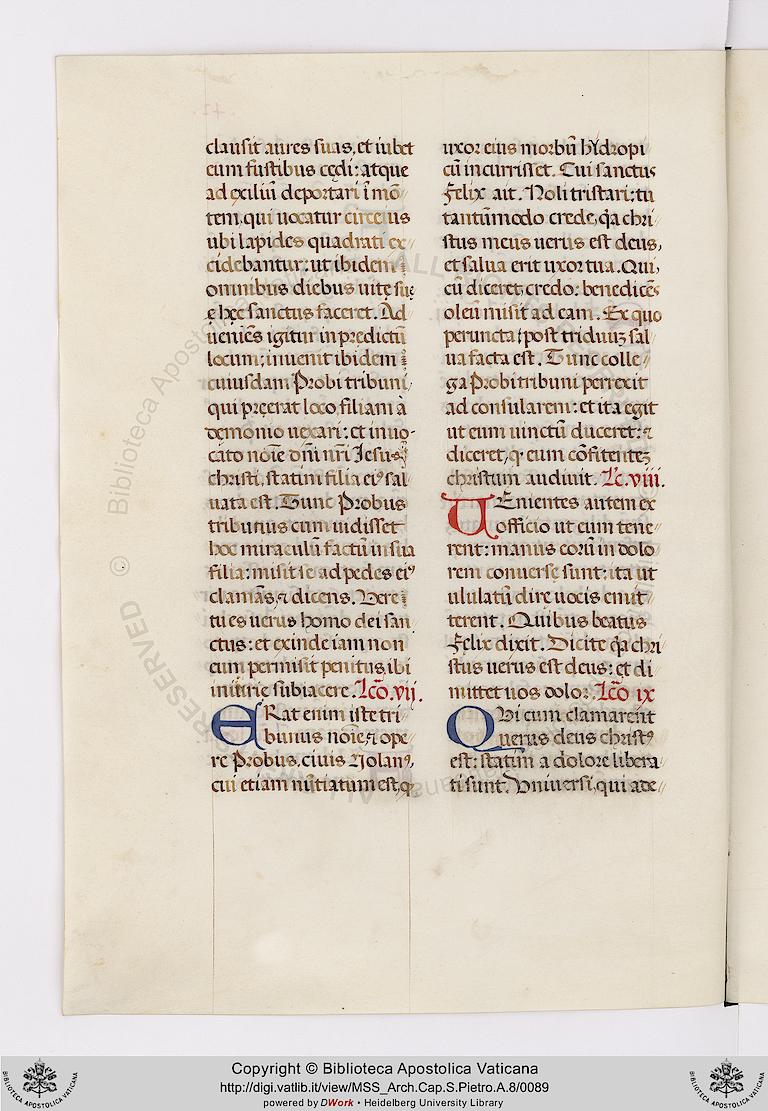 clausit aures suas, et iubet
eum fustibus cędi: atque
ad exiliū deportari ī mō
tem, qui uocatur circeius
ubi lapides quadrati ex
cidebantur: ut ibidem
omnibus diebus uitę suę
e hęc sanctus faceret. Ad
ueniēs igitur in predictū
locum; inuenit ibidem
cuiusdam Probi tribuni,
qui pręerat loco, filiam à
demonio uexari: et inuo-
cato noīe dn̄i nr̄i Iesu
christi, statim filia ei⁹ sal
uata est. Tunc Probus
tribunus cum uidisset
hoc miraculū factū in sua
filia: misit se ad pedes ei⁹
clamās, ⁊ dicens. Vere
tu es uerus homo dei san
ctus: et exinde iam non
eum permisit penitus ibi
iniurię subiacere. Lcō. vii.
ERat enim iste tri
bunus noīe, ⁊ ope
re Probus, ciuis Nolan⁹,
cui etiam nūtiatum est, ꝙ
uxor eius morbū hẏdropi
cū incurrisset. Cui sanctus
Felix ait. Noli tristari: tu
tantūmodo crede, q̄a chri
stus meus uerus est deus,
et salua erit uxor tua. Qui,
cū diceret, credo: benedicēs
oleū misit ad eam. Ex quo
peruncta post triduuꝫ sal
ua facta est. Tunc colle
ga Probi tribuni perrexit
ad consularem: et ita egit
ut eum uinctū duceret: ⁊
diceret, ꝙ eum cōfitenteꝫ
christum audiuit. Lc̄. viii.
TEnientes autem ex
officio ut eum tene
rent: manus eorū in dolo
rem conuersę sunt: ita ut
ululatū dire uocis emit
terent. Quibus beatus
Felix dixit. Dicite q̄a chri
stus uerus est deus: et di
mittet uos dolor. Lcō ix
QVi cum clamarent
uerus deus christ⁹
est: statim a dolore libera
ti sunt. Vniuersi, qui ade
Biblioteca Apostolica Vaticana
© ALL RIGHTS RESERVED
Copyright © Biblioteca Apostolica Vaticana
http://digi.vatlib.it/view/MSS_Arch.Cap.S.Pietro.A.8/0089
powered by DWork • Heidelberg University Library
BIBLIOTECA APOSTOLICA VATICANA
BIBLIOTECA APOSTOLICA VATICANA